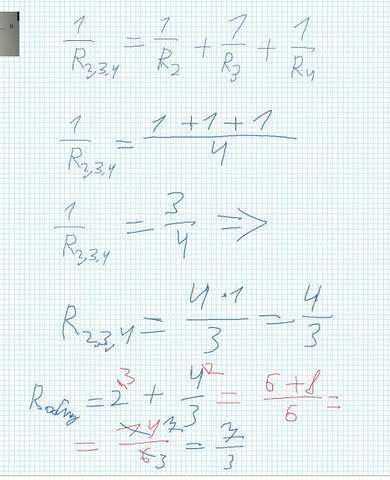 1/R₂,₃,₄ = 1/R₂ + 1/R₃ + 1/R₄
1/R₂,₃,₄ = (1 + 1 + 1)/4
1/R₂,₃,₄ = 3/4 =>
R₂,₃,₄ = (4 · 1)/3 = 4/3
Rобщ = 2³ + 4²/3 = (6 + 8)/6 =
= 14 7/6 3 = 7/3